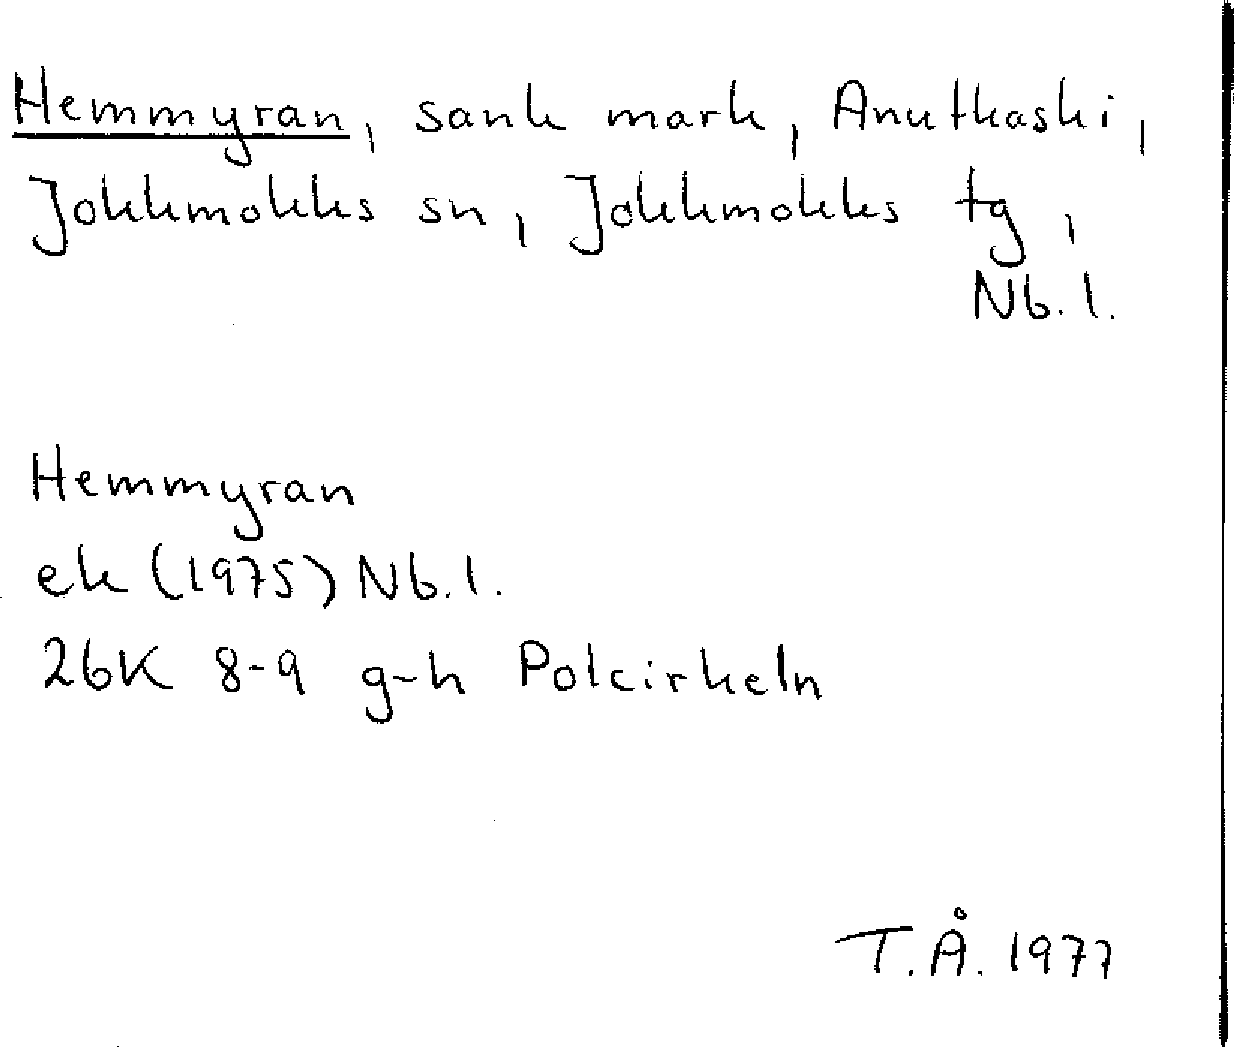 Hemmyran, sank mark, Anutkaski,
Jokkmokks sn, Jokkmokks tg,
Nb. l.
Hemmyran
ek (1975) Nb. l.
26K 8-9 g-h Polcirkeln
T.Å. 1977